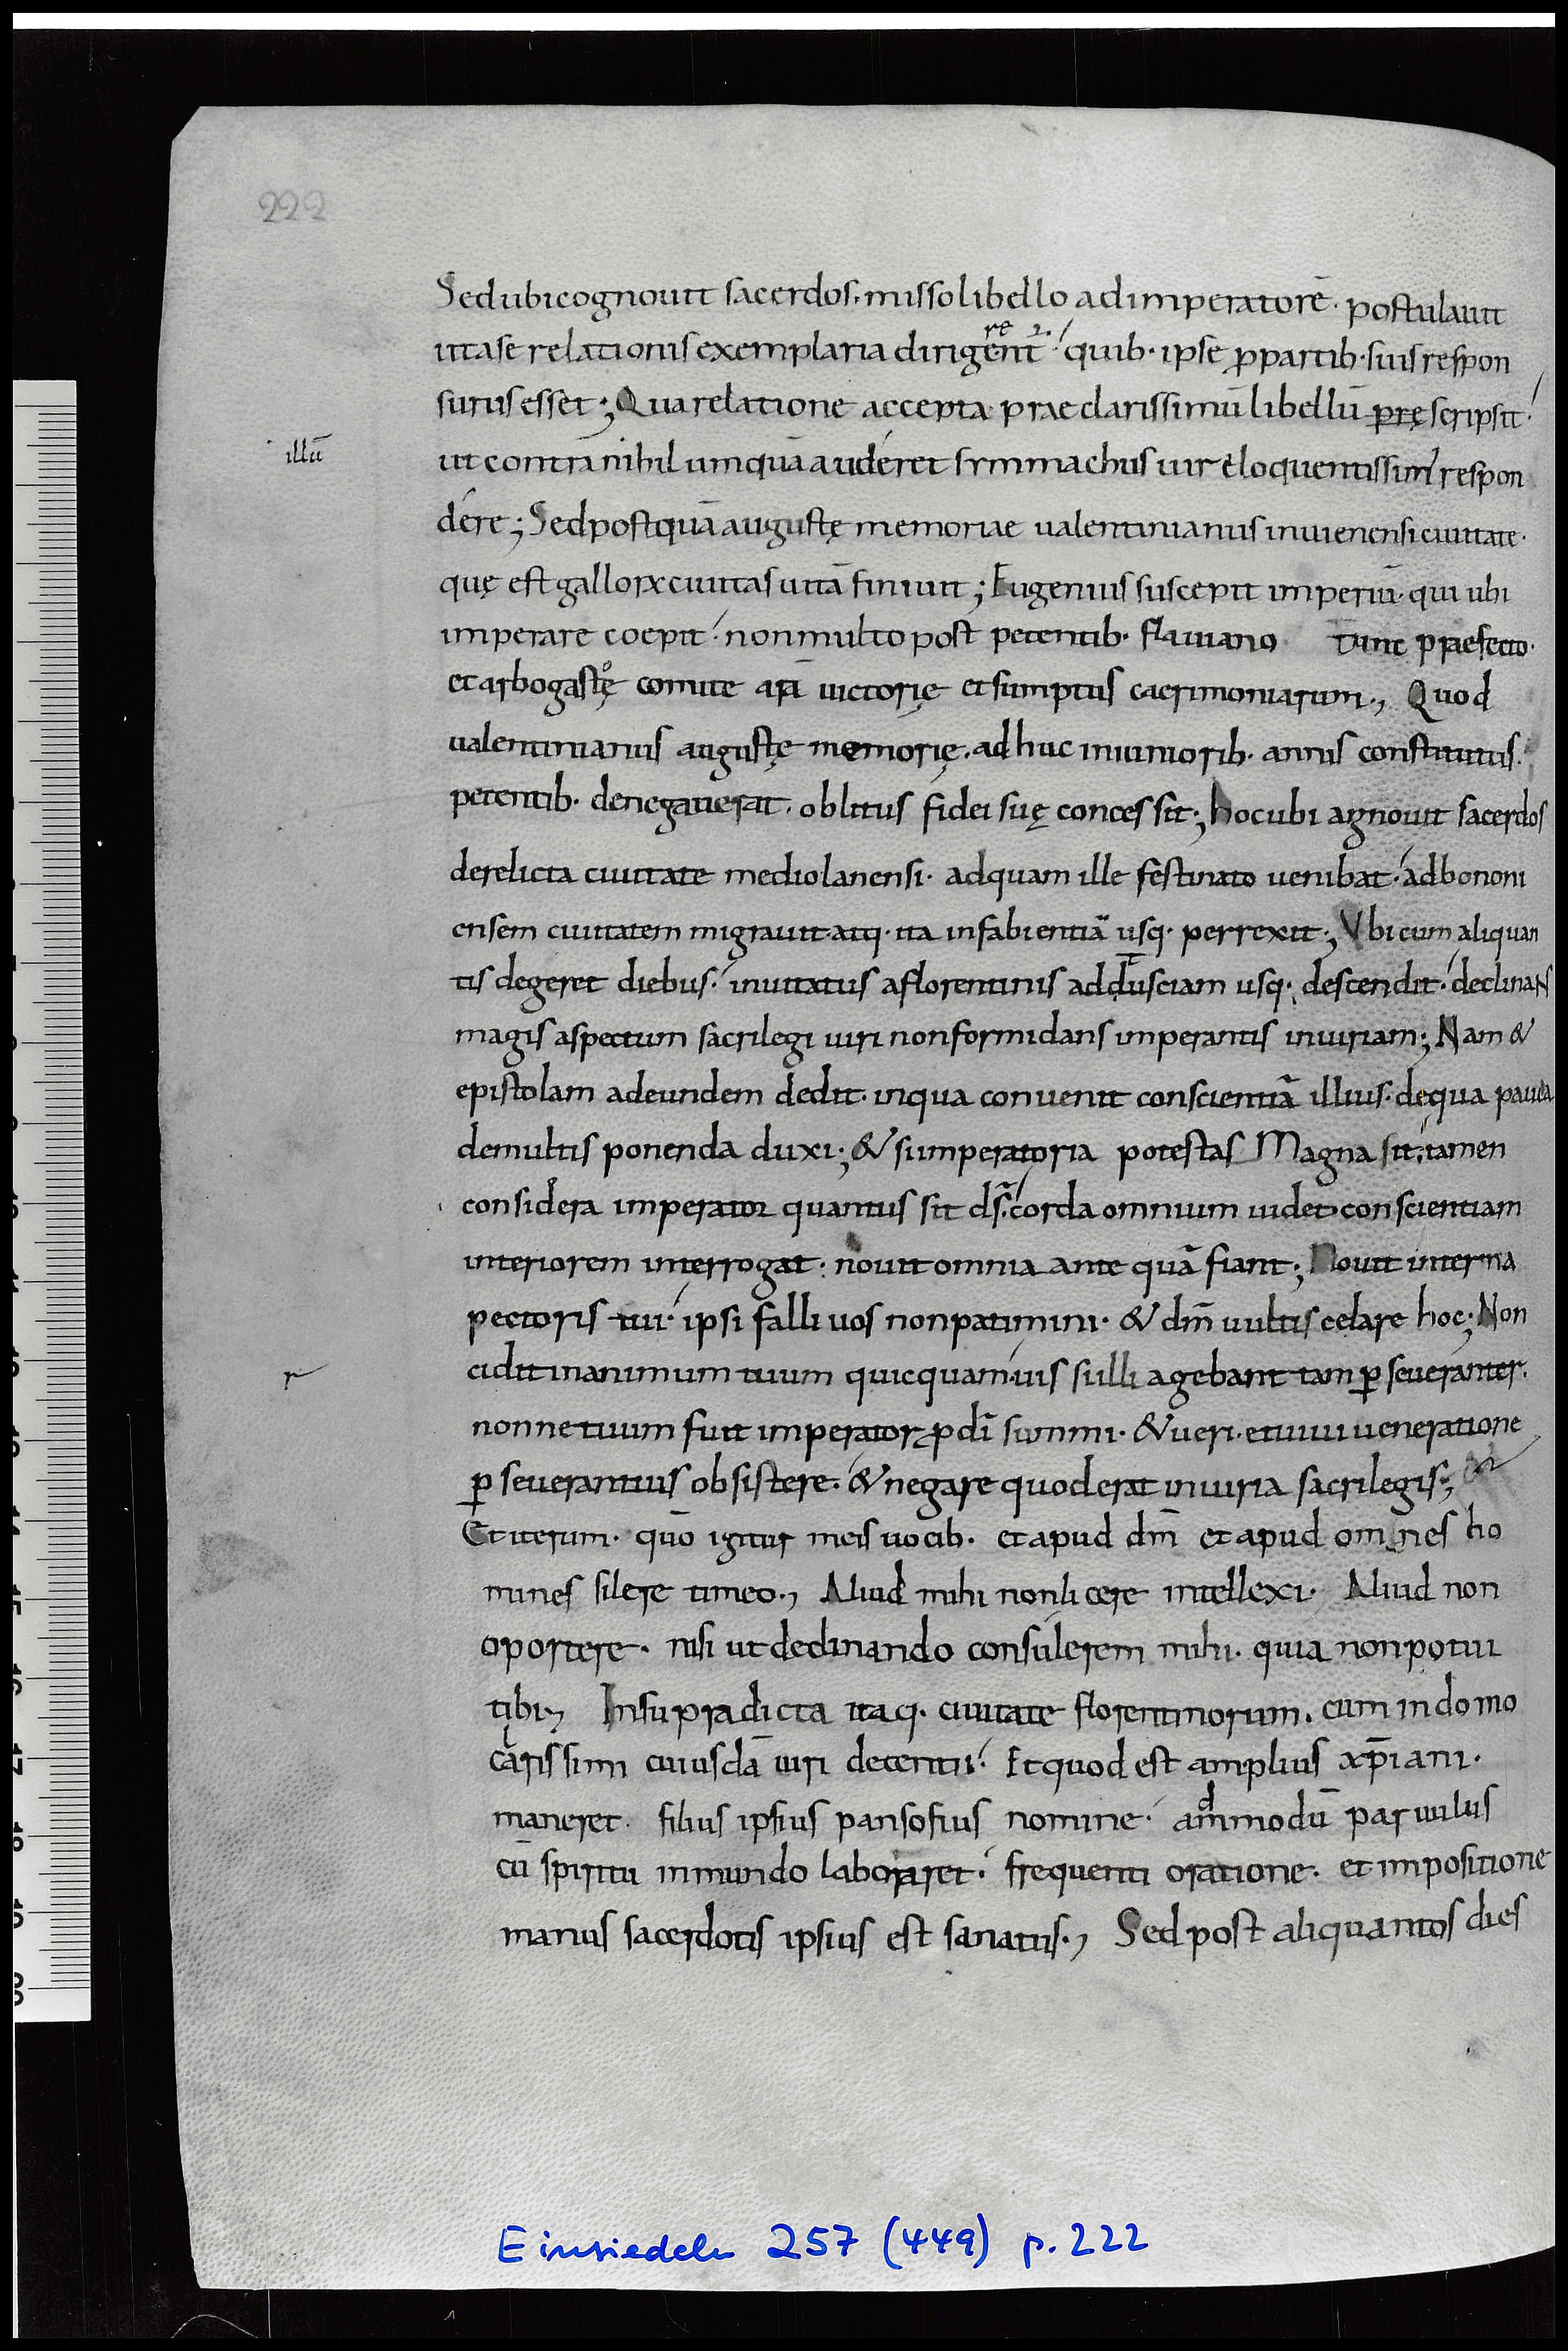 222
Sed ubi cognouit sacerdos. misso libello ad imperatorē. postulauit
ut ase relationis exemplaria dirigent quib· ipse p partib· suis respon
re
surus esset; Qua relatione accepta praeclarissimū libellū prę scripsit
illū
ut contra nihil umquā auderet symmachus uir eloquentissim' respon
dere; Sed postquā augustę memoriae ualentinianus inuienensi ciuitate·
quę est gallorx ciuitas uitā finiuit; Eugenius suscepit imperiū· qui ubi
imperare coepit· non multo post petentib· flauiano tunc praefecto·
et arbogastę comite arā uictorię et sumptus caerimoniarum., Quod
o
ualentinianus augustę memorię. ad huc iniuniorib· annis constitutis·
petentib· denegauerat. oblitus fidei suę concessit·; hoc ubi agnouit sacerdos
derelicta ciuitate mediolanensi· ad quam ille festinato uenibat· ad bononi
ensem ciuitatem migrauit atq· ita infabientiā usq· perrexit·; Vbi cum aliquan
tis degeret diebus· inuitatus aflorentinis ad dusciam usq· descendit· declinaNS
magis aspectum sacrilegi uiri non formidans imperantis iniuriam·; Nam &
epistolam ad eundem dedit· in qua conuenit conscientiā illius· de qua pauca
de multis ponenda duxi·; & si imperatoria potestas Magna sit· tamen
considera imperator quantus sit ds̄· corda omnium uidet· conscientiam
interiorem interrogat· nouit omnia ante quā fiant·; Nouit interna
pectoris tui· ipsi falli uos non patimini· & dm̄ uultis celare hoc·; Non
r
cidit in animum tuum quicquam· uis si illi agebant tam p seueranter·
nonne tuum fuit imperator p dī summi· & ueri· et uiui ueneratione
p seuerantius obsistere· & negare quod erat iniuria sacrilegis·;
Et iterum· quō igitur meis uocib· et apud dm̄ et apud omnes ho
mines silere timeo., Aliud mihi non licere intellexi· Aliud non
oportere· nisi ut declinando consulerem mihi· quia non potui
tibi., In supra dicta itaq· ciuitate florentinorum. cum in domo
carissimi cuiusdā uiri decentii· Et quod est amplius xp̄iani·
maneret· filius ipsius pansofius nomine· ammodū paruulus
d
cū spiritu inmundo laboraret· frequenti oratione· et impositione
manus sacerdotis ipsius est sanatus·, Sed post aliquantos dies
Einsiedeln 257 (449) p. 222